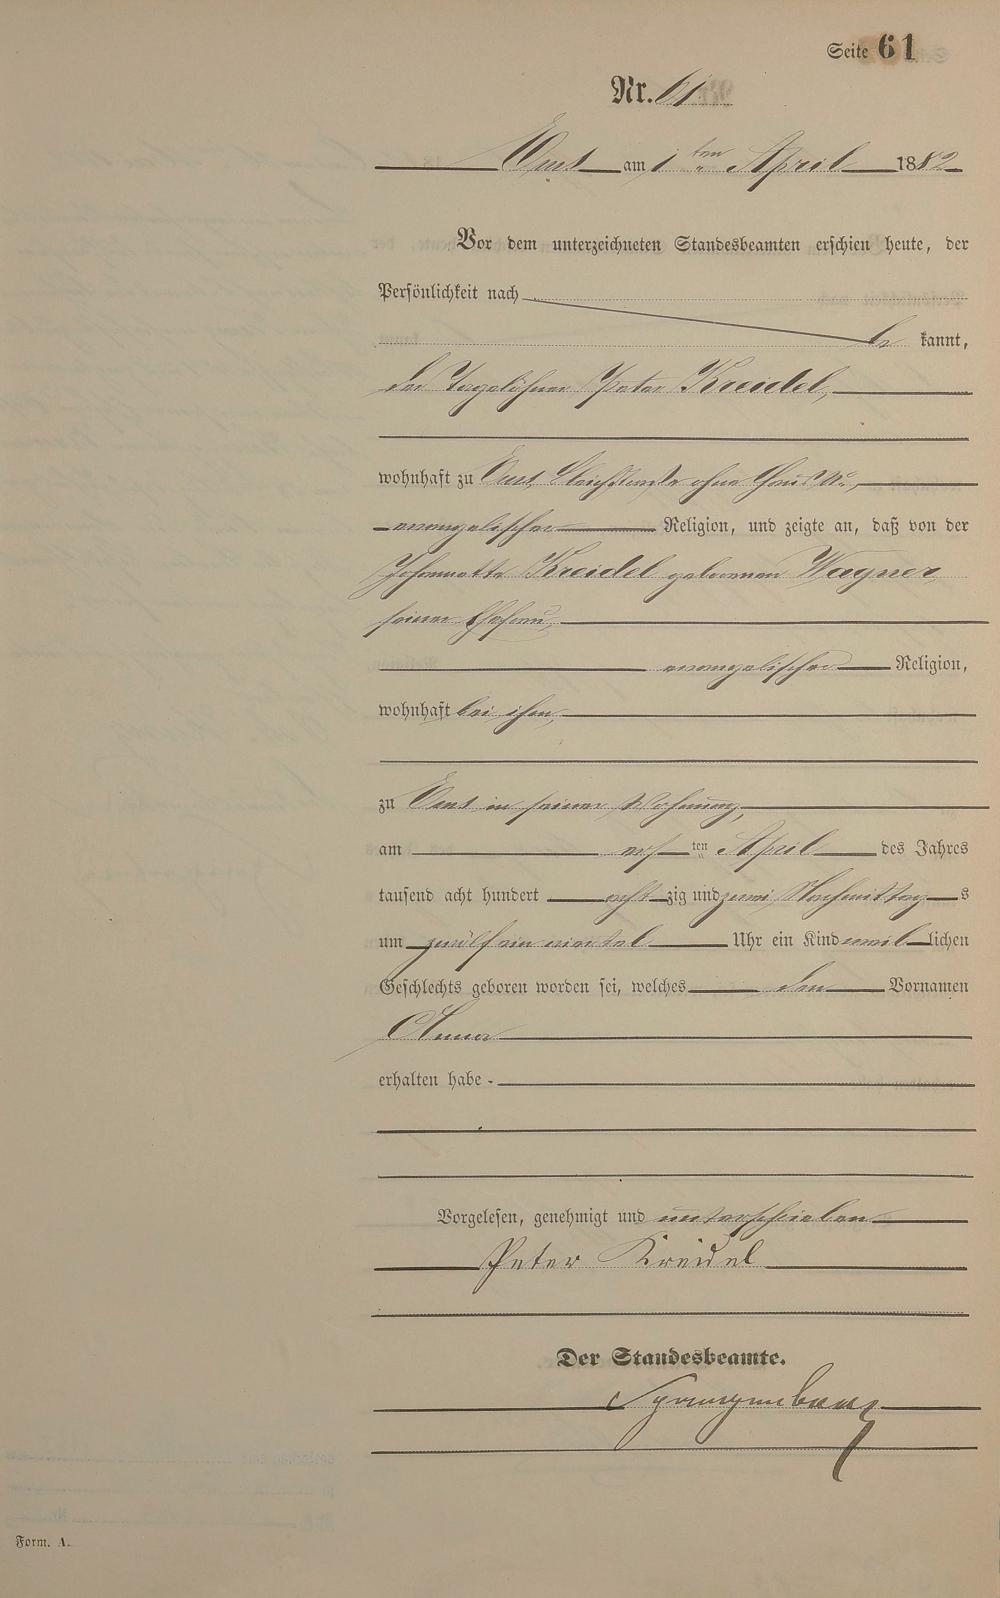 Seite 61
Nr. 61
Ems am 1ten April 1882
Vor dem unterzeichneten Standesbeamten erschien heute, der
Persönlichkeit nach
be kannt,
der Tagelöhner Peter Kreidel,
wohnhaft zu Ems, Bleichstraße ohne Haus No,
evangelischer Religion, und zeigte an, daß von der
Johannette Kreidel geborenen Wagner
seiner Ehefrau,
evangelischer Religion,
wohnhaft bei ihm,
zu Ems in seiner Wohnung,
am ersten April des Jahres
tausend acht hundert acht zig und zwei Nachmittags
um zwölf ein viertel Uhr ein Kind weiblichen
Geschlechts geboren worden sei, welches den Vornamen
Anna
erhalten habe.
Vorgelesen, genehmigt und unterschrieben
Peter Kreidel
Der Standesbeamte.
Form. A.